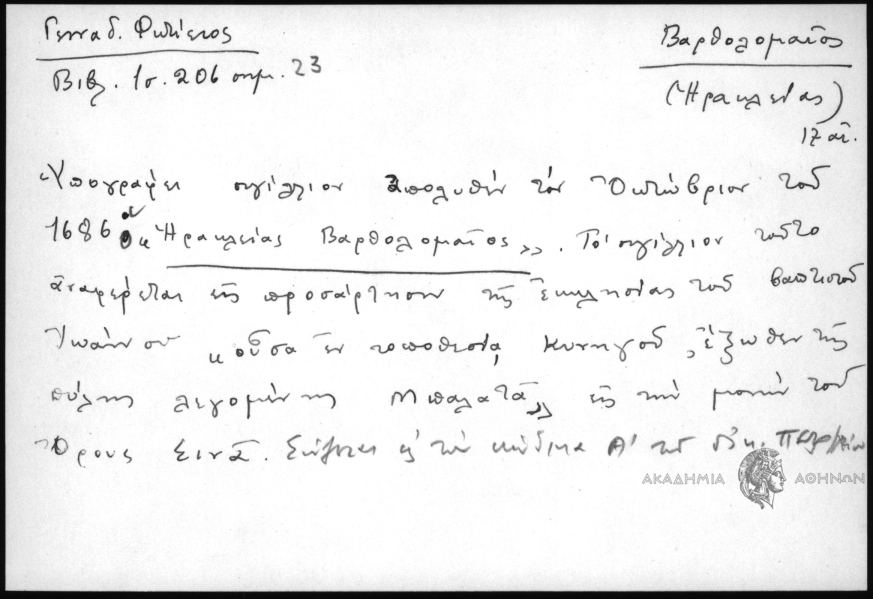 Γενναδ. Φωτίειος
Βιβλ. 1σ. 206 σημ. 23
Βαρθολομαῖος
(Ἡρακλείας)
17 αἰ.
Ὑπογράφει σιγίλλιον ἀπολυθὲν τὸν Ὀκτώβριον τοῦ
1686 « Ἡρακλείας Βαρθολομαῖος ». Τὸ σιγίλλιον τοῦτο
ἀναφέρεται εἰς προσάρτησιν τῆς Ἐκκλησίας τοῦ βαπτιστοῦ
Ἰωάννου « οὖσα ἐν τοποθεσίᾳ Κυνηγοῦ, ἔξωθεν τῆς
πύλης λεγομένης Μπαλατᾶ » εἰς τὴν μονὴν τοῦ
Ὄρους Σινᾶ. Σώζεται εἰς τὸν κώδικα Α' τοῦ Οἰκ. Πατρ/είου
ΑΚΑΔΗΜΙΑ ΑΘΗΝΩΝ